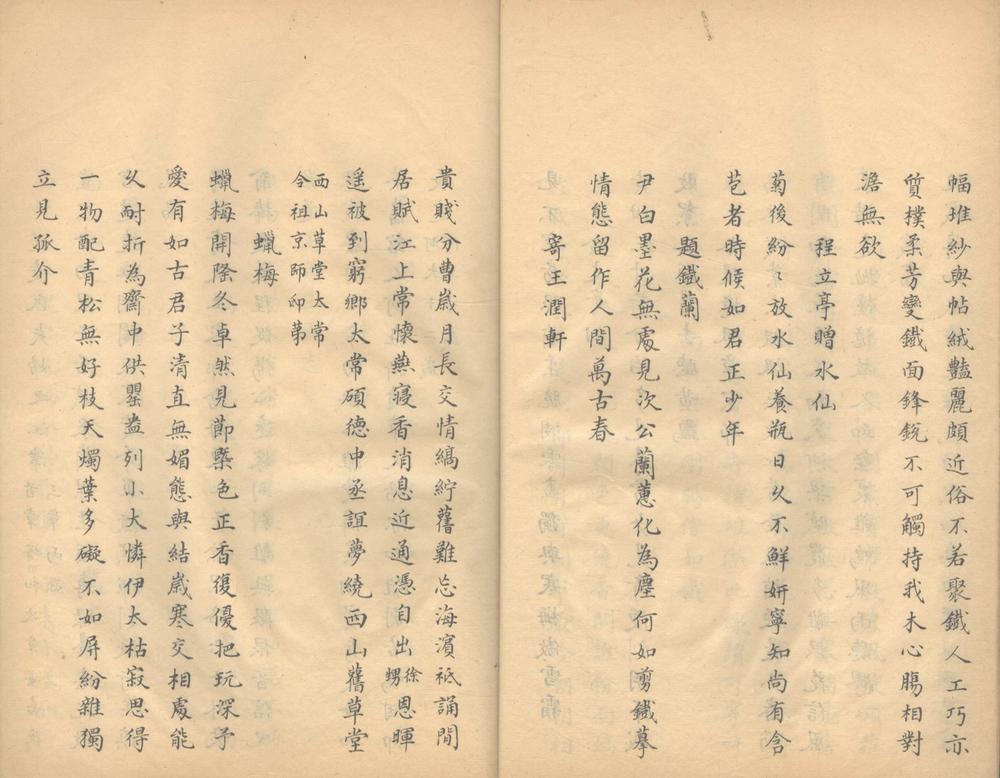 幅堆紗與帖絨豔麗頗近俗不若聚鐵人工巧亦
質樸柔芳變鐵面鋒銳不可觸持我木心膓相對
澹無欲
程立亭贈水仙
菊後紛〻放水仙養瓶日久不鮮妍寧知尚有含
苞者時候如君正少年
題鐵蘭
尹白墨花無處見次公蘭蕙化為塵何如剪鐵摹
情態留作人間萬古春
寄王潤軒
貴賤分曹歲月長交情縞紵舊難忘海濱祇誦閒
居賦江上常懷燕寢香消息近通憑自出徐甥恩暉
遥被到窮鄉太常碩德中丞誼夢繞西山舊草堂
西山草堂太常
令祖京師邸第
蠟梅
蠟梅開隆冬卓然見節槩色正香復優把玩深予
愛有如古君子清直無媚態與結歲寒交相處能
久耐折為齋中供罌盎列小大憐伊太枯寂思得
一物配青松無好枝天燭葉多礙不如屏紛雜獨
立見孤介